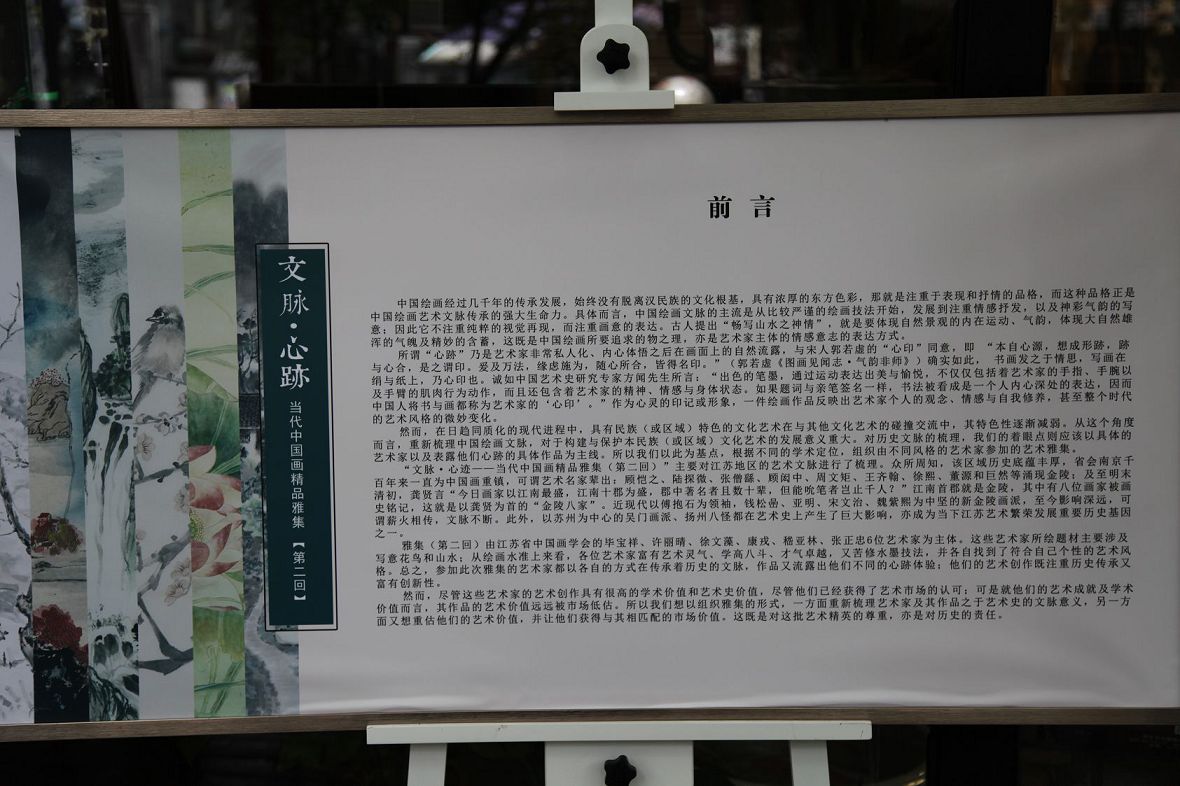 文脉·心跡
当代中国画精品雅集【第二回】
前言
中国绘画经过几千年的传承发展，始终没有脱离汉民族的文化根基，具有浓厚的东方色彩，那就是注重于表现和抒情的品格，而这种品格正是
中国绘画艺术文脉传承的强大生命力。具体而言，中国绘画文脉的主流是从比较严谨的绘画技法开始，发展到注重情感抒发，以及神彩气韵的写
意；因此它不注重纯粹的视觉再现，而注重画意的表达。古人提出“畅写山水之神情”，就是要体现自然景观的内在运动、气韵，体现大自然雄
浑的气魄及精妙的含蓄，这既是中国绘画所要追求的物之理，亦是艺术家主体的情感意志的表达方式。
所谓“心跡”乃是艺术家非常私人化、内心体悟之后在画面上的自然流露，与宋人郭若虚的“心印”同意，即 “本自心源，想成形跡，跡
与心合，是之谓印。爰及万法，缘虑施为，随心所合，皆得名印。”（郭若虚《图画见闻志·气韵非师》）确实如此， 书画发之于情思，写画在
绢与纸上，乃心印也。诚如中国艺术史研究专家方闻先生所言：“出色的笔墨，通过运动表达出美与愉悦，不仅仅包括着艺术家的手指、手腕以
及手臂的肌肉行为动作，而且还包含着艺术家的精神、情感与身体状态。如果题词与亲笔签名一样，书法被看成是一个人内心深处的表达，因而
中国人将书与画都称为艺术家的‘心印’。”作为心灵的印记或形象，一件绘画作品反映出艺术家个人的观念、情感与自我修养，甚至整个时代
的艺术风格的微妙变化。
然而，在日趋同质化的现代进程中，具有民族（或区域）特色的文化艺术在与其他文化艺术的碰撞交流中，其特色性逐渐减弱。从这个角度
而言，重新梳理中国绘画文脉，对于构建与保护本民族（或区域）文化艺术的发展意义重大。对历史文脉的梳理，我们的着眼点则应该以具体的
艺术家以及表露他们心跡的具体作品为主线。所以我们以此为基点，根据不同的学术定位，组织由不同风格的艺术家参加的艺术雅集。
“文脉·心迹——当代中国画精品雅集（第二回）”主要对江苏地区的艺术文脉进行了梳理。众所周知，该区域历史底蕴丰厚，省会南京千
百年来一直为中国画重镇，可谓艺术名家辈出：顾恺之、陆探微、张僧繇、顾闳中、周文矩、王齐翰、徐熙、董源和巨然等涌现金陵；及至明末
清初，龚贤言“今日画家以江南最盛，江南十郡为盛，郡中著名者且数十辈，但能吮笔者岂止千人？”江南首郡就是金陵，其中有八位画家被画
史铭记，这就是以龚贤为首的“金陵八家”。近现代以傅抱石为领袖，钱松喦、亚明、宋文治、魏紫熙为中坚的新金陵画派，至今影响深远，可
谓薪火相传，文脉不断。此外，以苏州为中心的吴门画派、扬州八怪都在艺术史上产生了巨大影响，亦成为当下江苏艺术繁荣发展重要历史基因
之一。
雅集（第二回）由江苏省中国画学会的毕宝祥、许丽晴、徐文藻、康戎、嵇亚林、张正忠6位艺术家为主体。这些艺术家所绘题材主要涉及
写意花鸟和山水；从绘画水准上来看，各位艺术家富有艺术灵气、学高八斗、才气卓越，又苦修水墨技法，并各自找到了符合自己个性的艺术风
格。总之，参加此次雅集的艺术家都以各自的方式在传承着历史的文脉，作品又流露出他们不同的心跡体验；他们的艺术创作既注重历史传承又
富有创新性。
然而，尽管这些艺术家的艺术创作具有很高的学术价值和艺术史价值，尽管他们已经获得了艺术市场的认可；可是就他们的艺术成就及学术
价值而言，其作品的艺术价值远远被市场低估。所以我们想以组织雅集的形式，一方面重新梳理艺术家及其作品之于艺术史的文脉意义，另一方
面又想重估他们的艺术价值，并让他们获得与其相匹配的市场价值。这既是对这批艺术精英的尊重，亦是对历史的责任。